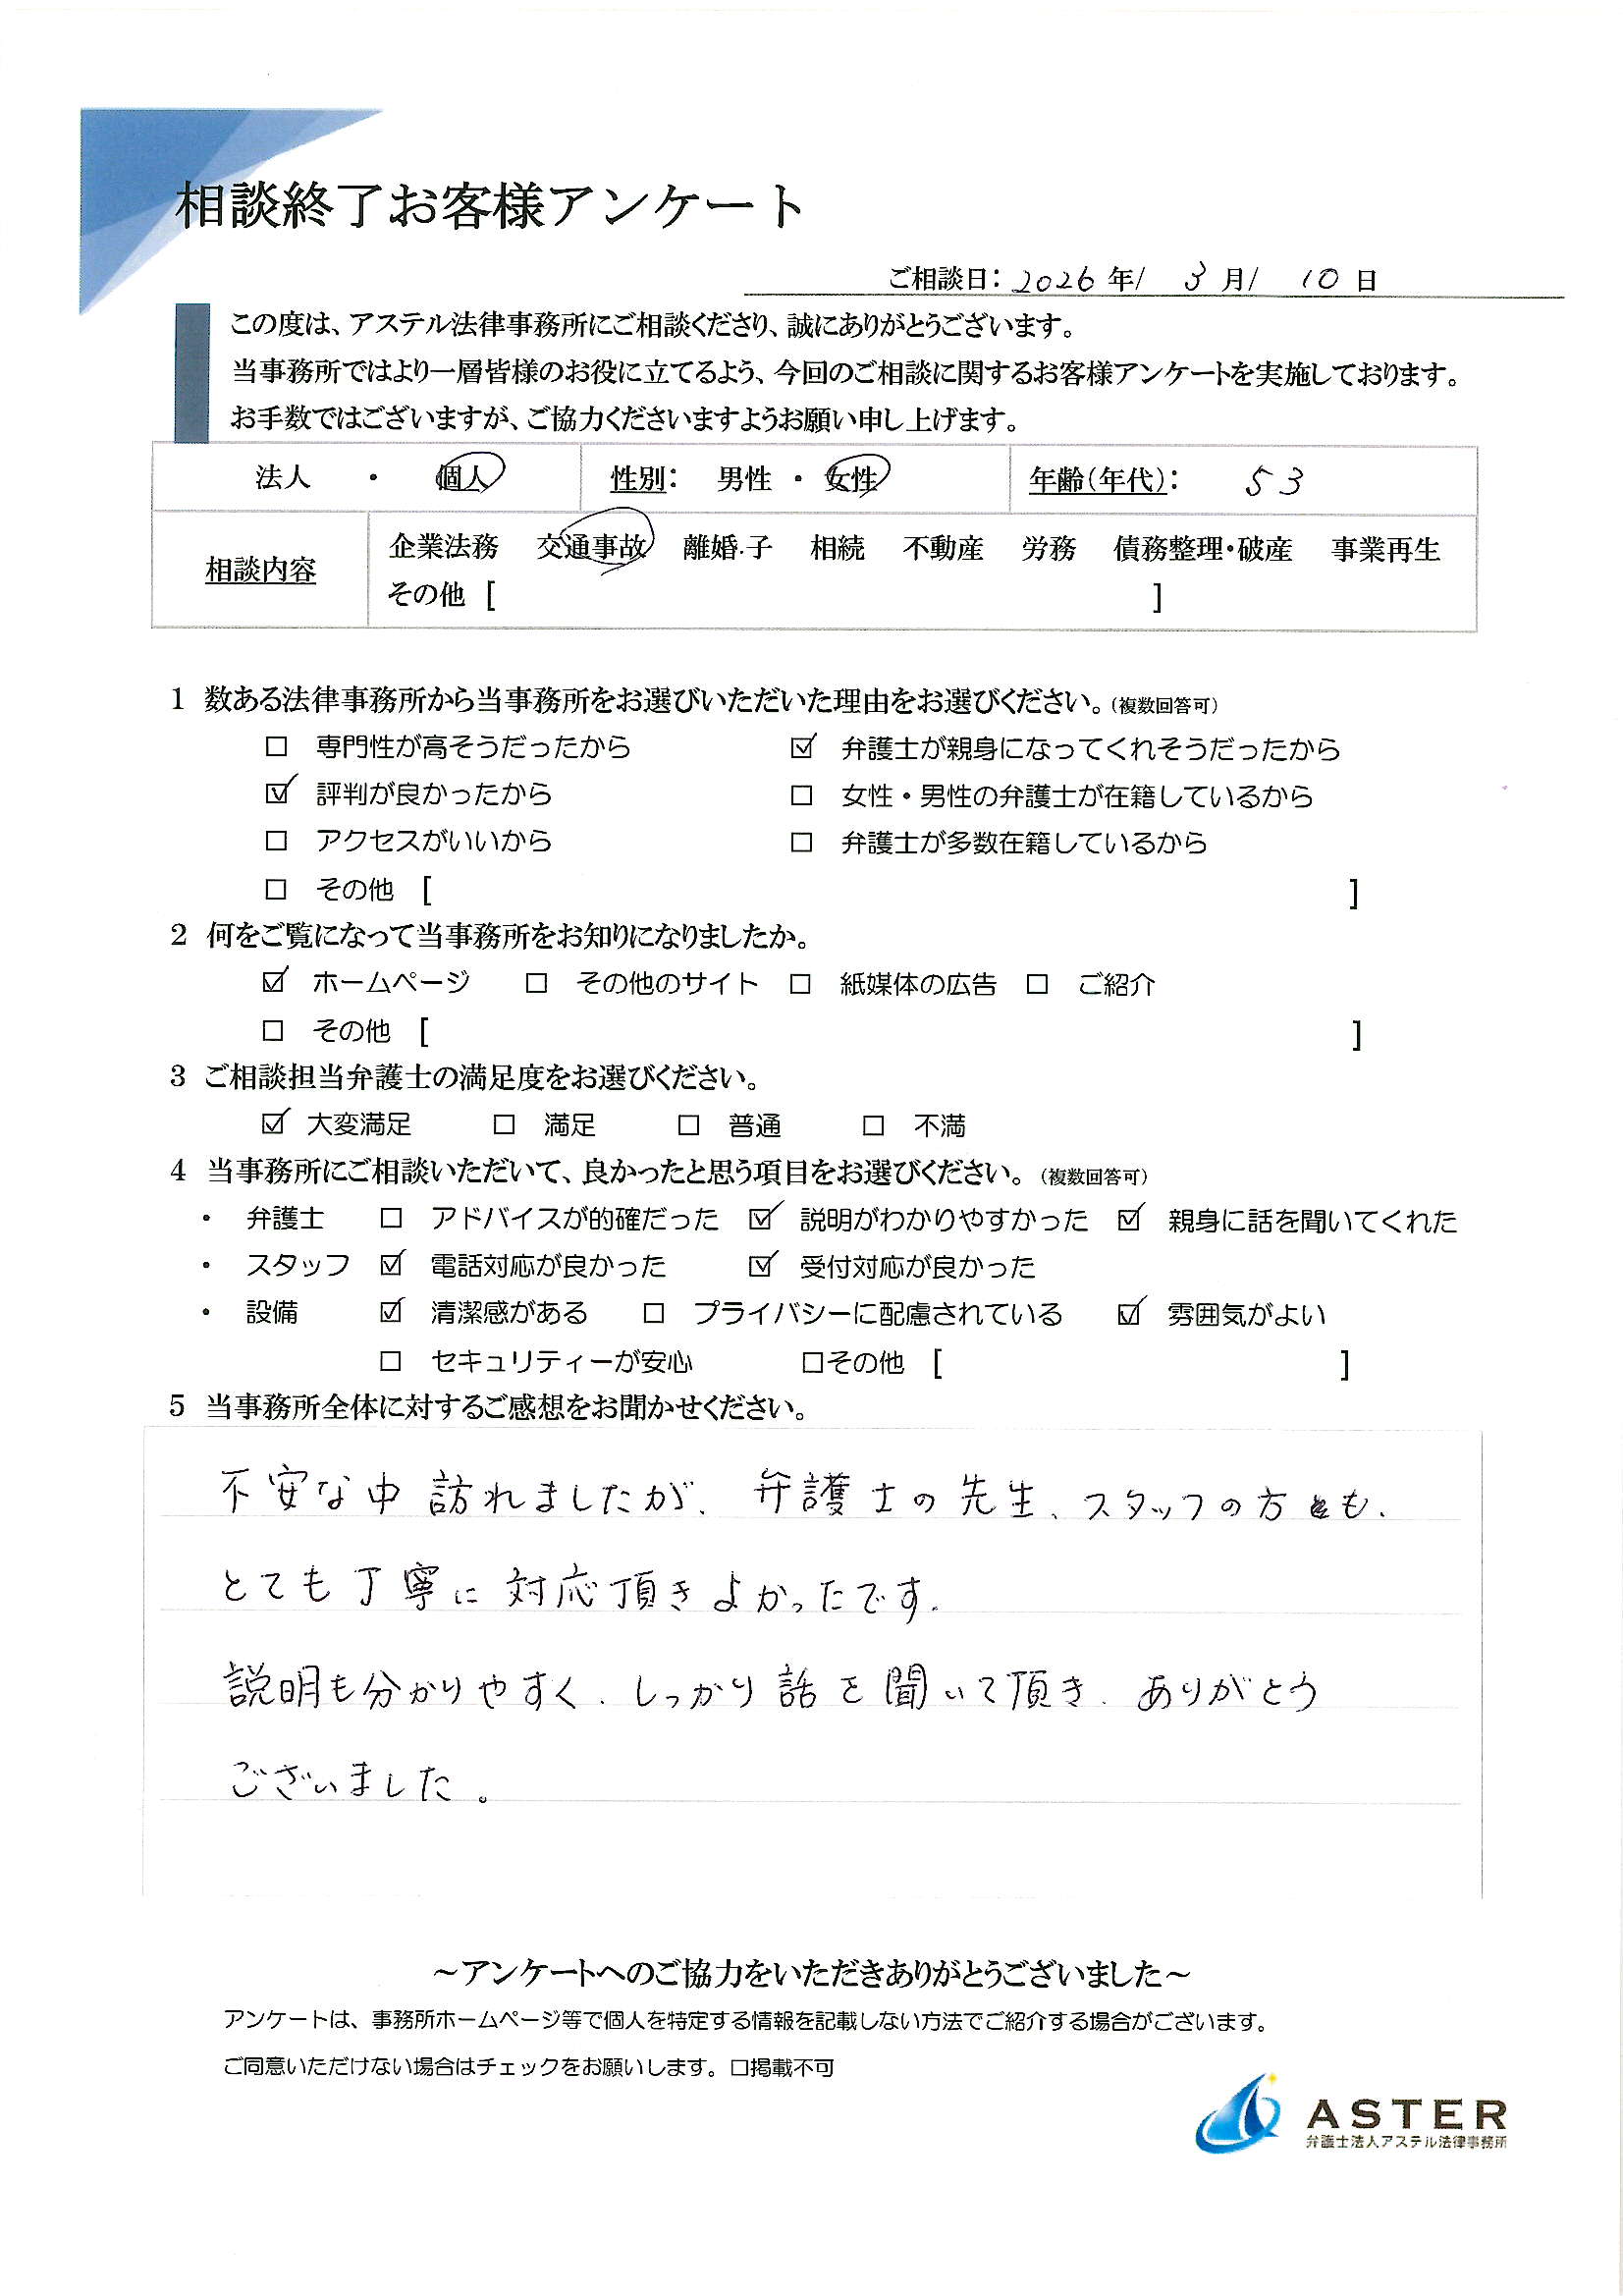 相談終了お客様アンケート
ご相談日：2026年/ 3月/ 10日
この度は、アステル法律事務所にご相談くださり、誠にありがとうございます。
当事務所ではより一層皆様のお役に立てるよう、今回のご相談に関するお客様アンケートを実施しております。
お手数ではございますが、ご協力くださいますようお願い申し上げます。
法人 ・ 個人 性別： 男性 ・ 女性 年齢（年代）： 53
相談内容 企業法務 交通事故 離婚・子 相続 不動産 労務 債務整理・破産 事業再生
その他 [ ]
1 数ある法律事務所から当事務所をお選びいただいた理由をお選びください。（複数回答可）
□ 専門性が高そうだったから ☑ 弁護士が親身になってくれそうだったから
☑ 評判が良かったから □ 女性・男性の弁護士が在籍しているから
□ アクセスがいいから □ 弁護士が多数在籍しているから
□ その他 [ ]
2 何をご覧になって当事務所をお知りになりましたか。
☑ ホームページ □ その他のサイト □ 紙媒体の広告 □ ご紹介
□ その他 [ ]
3 ご相談担当弁護士の満足度をお選びください。
☑ 大変満足 □ 満足 □ 普通 □ 不満
4 当事務所にご相談いただいて、良かったと思う項目をお選びください。（複数回答可）
・ 弁護士 □ アドバイスが的確だった ☑ 説明がわかりやすかった ☑ 親身に話を聞いてくれた
・ スタッフ ☑ 電話対応が良かった ☑ 受付対応が良かった
・ 設備 ☑ 清潔感がある □ プライバシーに配慮されている ☑ 雰囲気がよい
□ セキュリティーが安心 □その他 [ ]
5 当事務所全体に対するご感想をお聞かせください。
不安な中訪れましたが、弁護士の先生、スタッフの方とも、
とても丁寧に対応頂きよかったです。
説明も分かりやすく、しっかり話を聞いて頂き、ありがとう
ございました。
～アンケートへのご協力をいただきありがとうございました～
アンケートは、事務所ホームページ等で個人を特定する情報を記載しない方法でご紹介する場合がございます。
ご同意いただけない場合はチェックをお願いします。□掲載不可
ASTER
弁護士法人アステル法律事務所